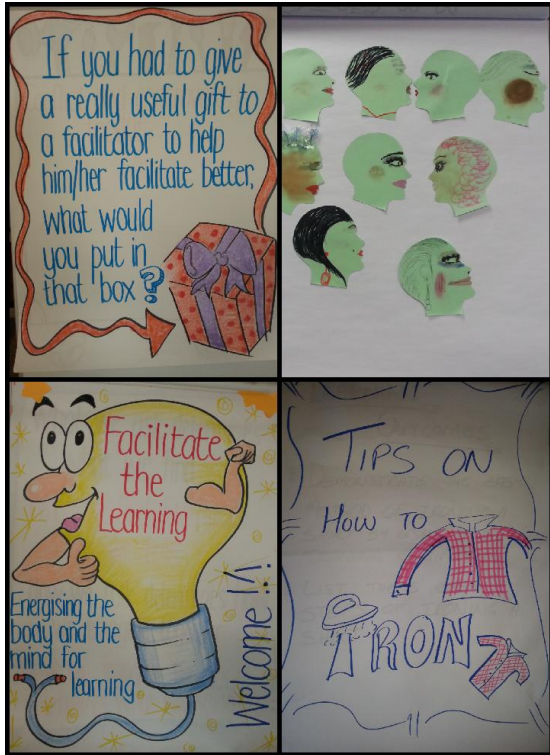 If you had to give
a really useful gift to
a facilitator to help
him/her facilitate better,
what would
you put in
that box?
Facilitate
the
Learning
Energising the
body and the
mind for
learning
Welcome !!!
TIPS ON
HOW TO
IRON